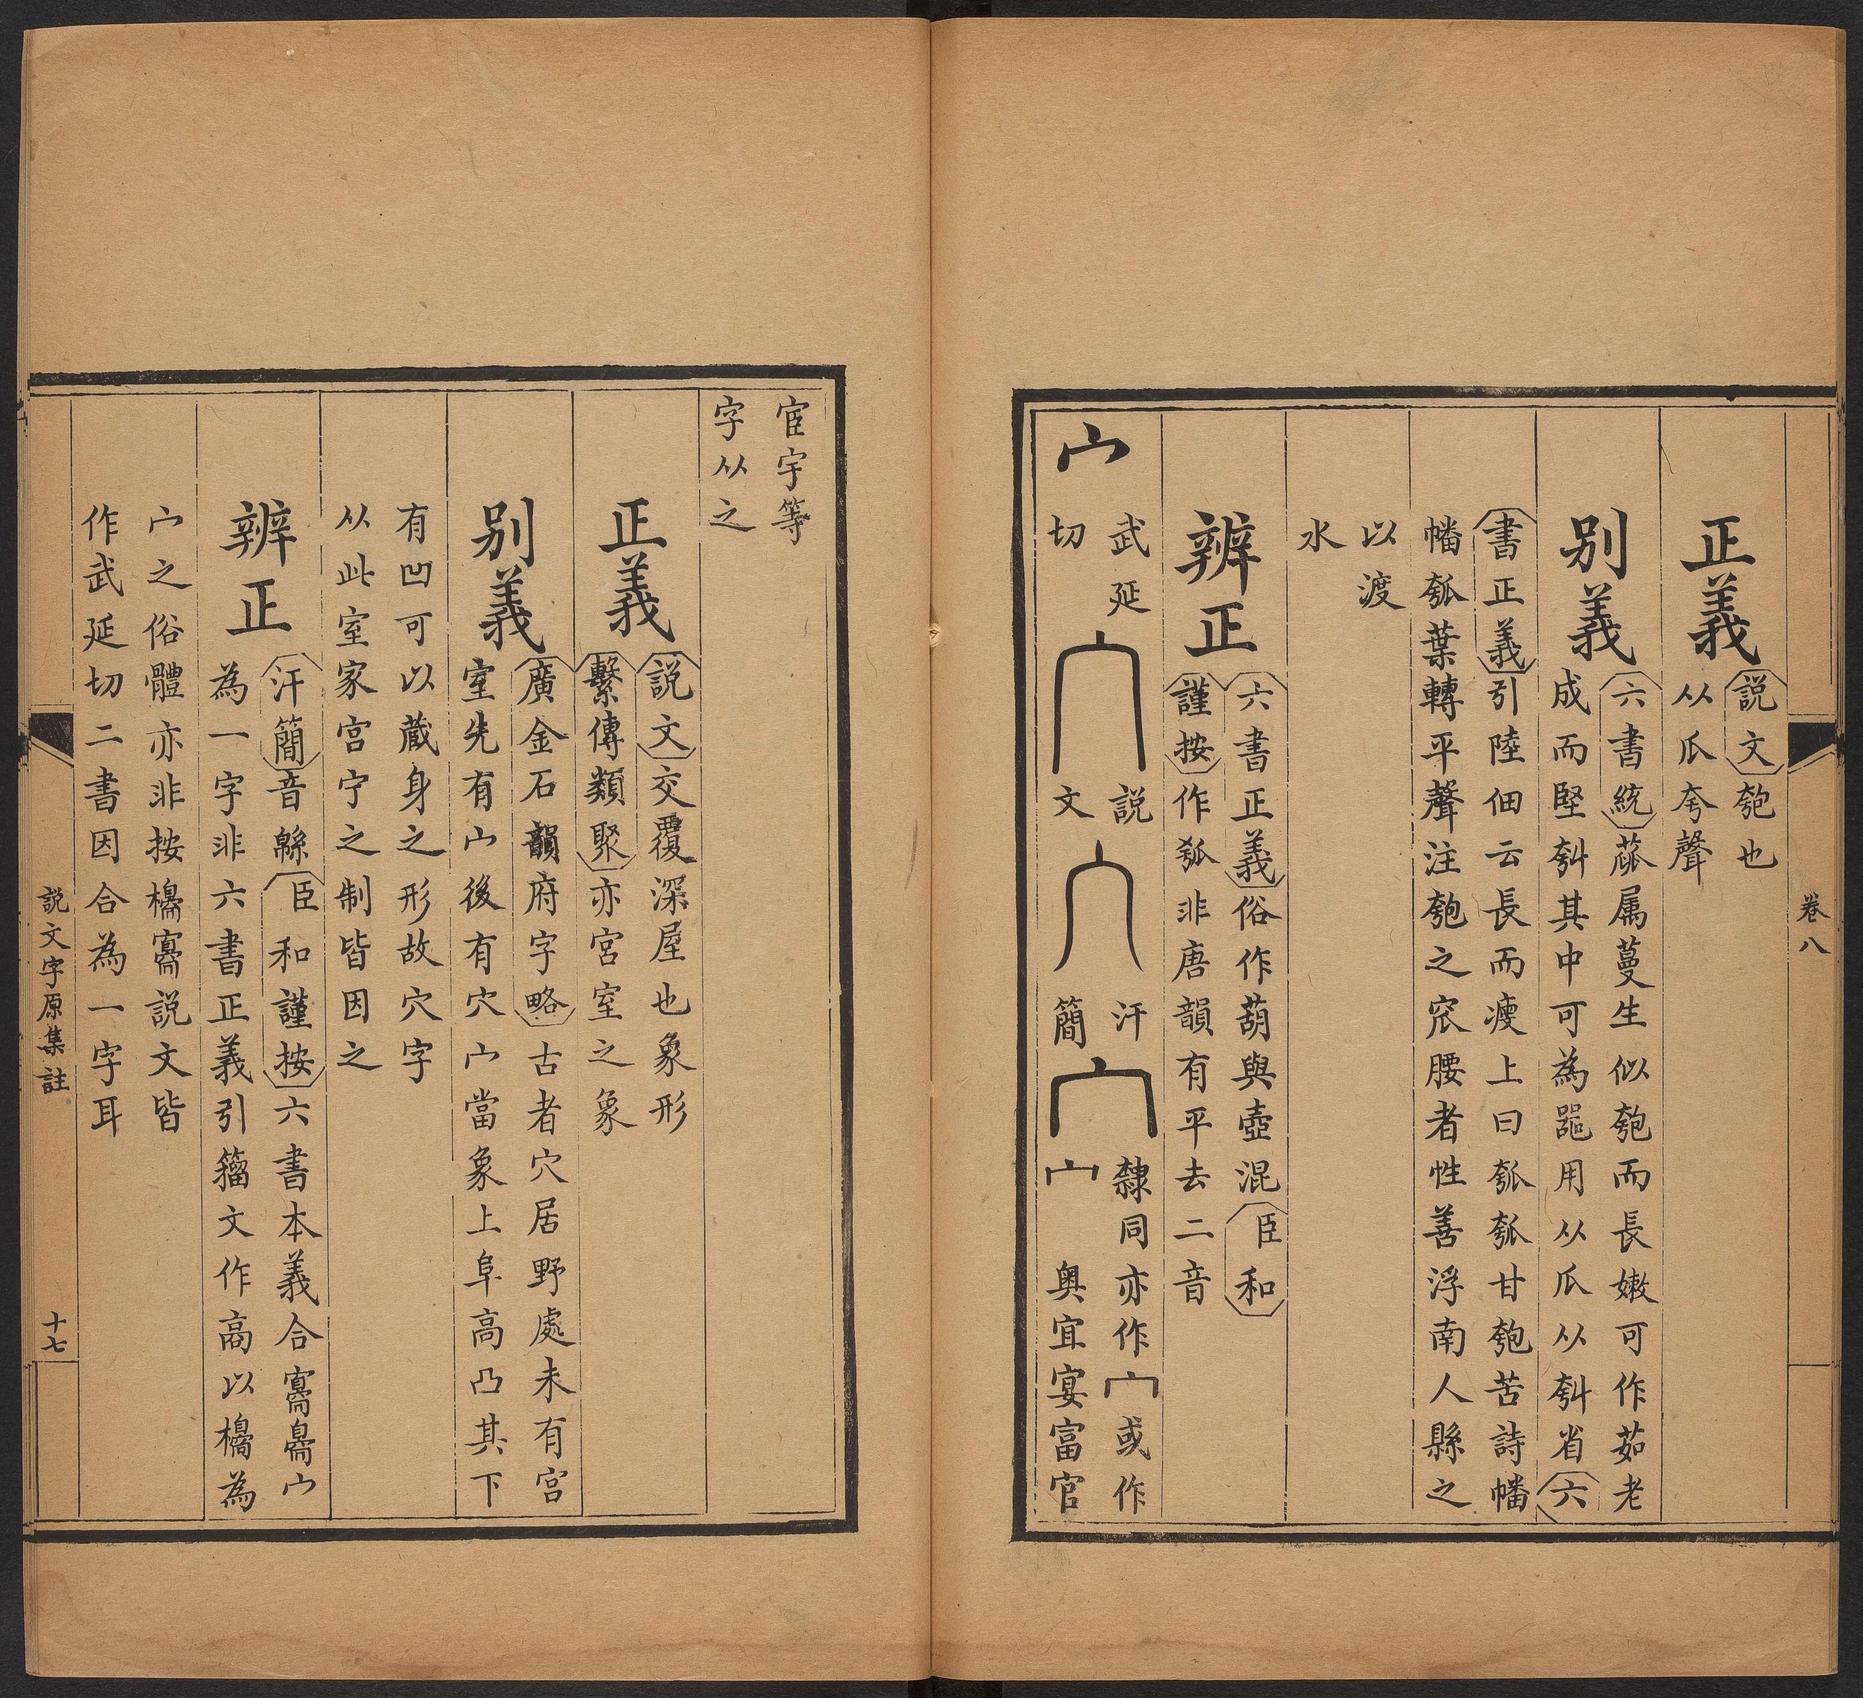 卷八
正義
說文瓠也
从瓜夸聲
別義
六書統蓏属蔓生似匏而長嫩可作茹老
成而堅刳其中可為噐用从瓜从刳省六
書正義引陸佃云長而瘦上曰瓠瓠甘匏苦詩幡
幡瓠葉轉平聲注匏之窊腰者性善浮南人縣之
以渡
水
辨正
六書正義俗作葫與壺混臣和
謹按作瓠非唐韻有平去二音
宀
武延
切
說
文
汗
簡
隸同亦作宀或作
宀 奥宜宴富官
宦宇等
字从之
正義
說文交覆深屋也象形
繫傳類聚亦宮室之象
別義
廣金石韻府字略古者穴居野處未有宮
室先有宀後有穴宀當象上阜高凸其下
有凹可以蔵身之形故穴字
从此室家宮宁之制皆因之
辨正
汗簡音緜臣和謹按六書本義合寪㝱宀
為一字非六書正義引籀文作高以㯠為
宀之俗體亦非按㯠寪說文皆
作武延切二書因合為一字耳
說文字原集註
十七